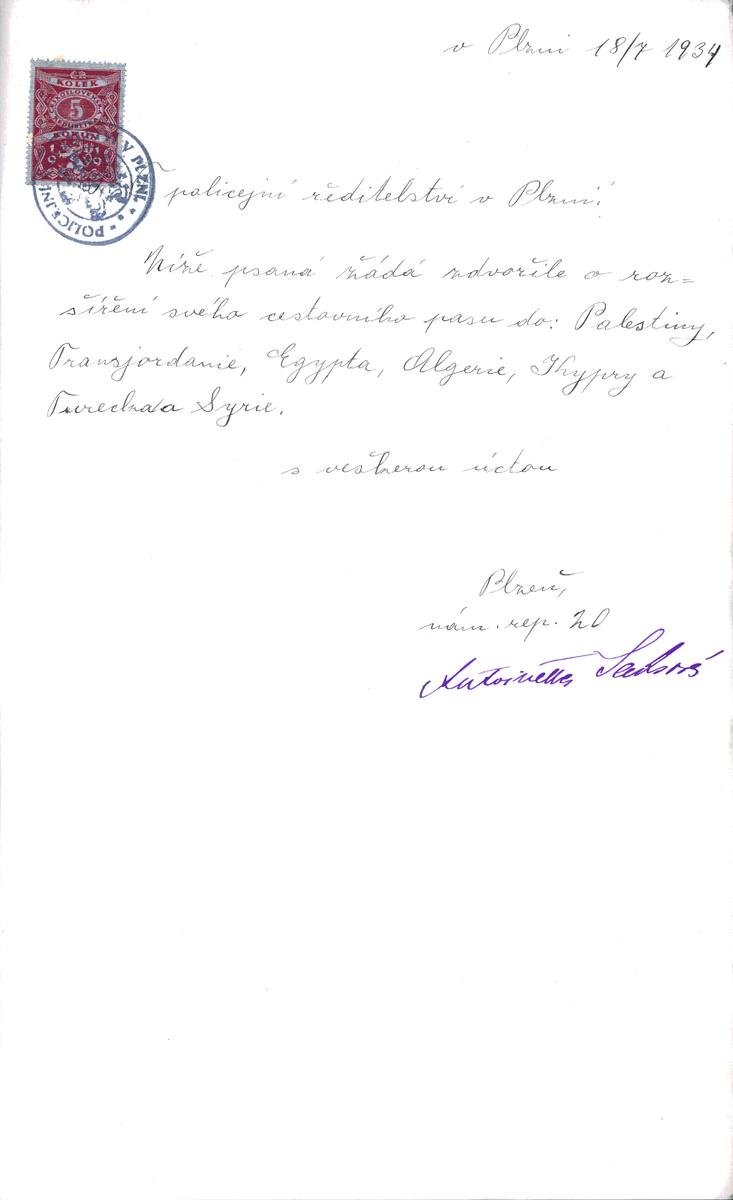 v Plzni 18/7 1934
ČR
KOLEK
5
POLICEJNÍ V PLZNI
policejní ředitelství v Plzni!
Níže psaná žádá zdvořile o roz=
šíření svého cestovního pasu do: Palestiny,
Transjordanie, Egypta, Algerie, Kypry a
Turecka a Syrie.
s veškerou úctou
Plzeň,
nám. rep. 20
Antoinette